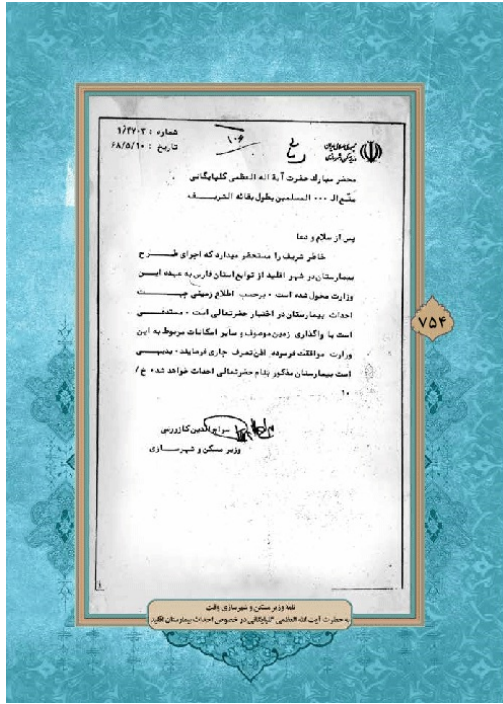 شماره : ۱/۴۷۰۳
تاریخ : ۶۸/۵/۱۰
۱۰۶
جمهوری اسلامی ایران
وزارت مسکن و شهرسازی
محضر مبارک حضرت آیة اله العظمی گلپایگانی
متّع اله ۰۰۰ المسلمین بطول بقائه الشریـــف
پس از سلام و دعا
خاطر شریف را مستحضر میدارد که اجرای طـــرح
بیمارستان در شهر اقلید از توابع استان فارس به عهده ایـن
وزارت محول شده است ۰ برحسب اطلاع زمینی جهـــت
احداث بیمارستان در اختیار حضرتعالی است ۰ مستدعـی
است با واگذاری زمین موصوف و سایر امکانات مربوط به این
وزارت موافقت فرموده، اذن تصرف جاری فرمایند ۰ بدیهـی
است بیمارستان مذکور بنام حضرتعالی احداث خواهد شد، خ/
۱۰
سراج الدین کازرونی
وزیر مسکن و شهرسـازی
۷۵۴
نامه وزیر مسکن و شهرسازی وقت
به حضرت آیت الله العظمی گلپایگانی در خصوص احداث بیمارستان اقلید